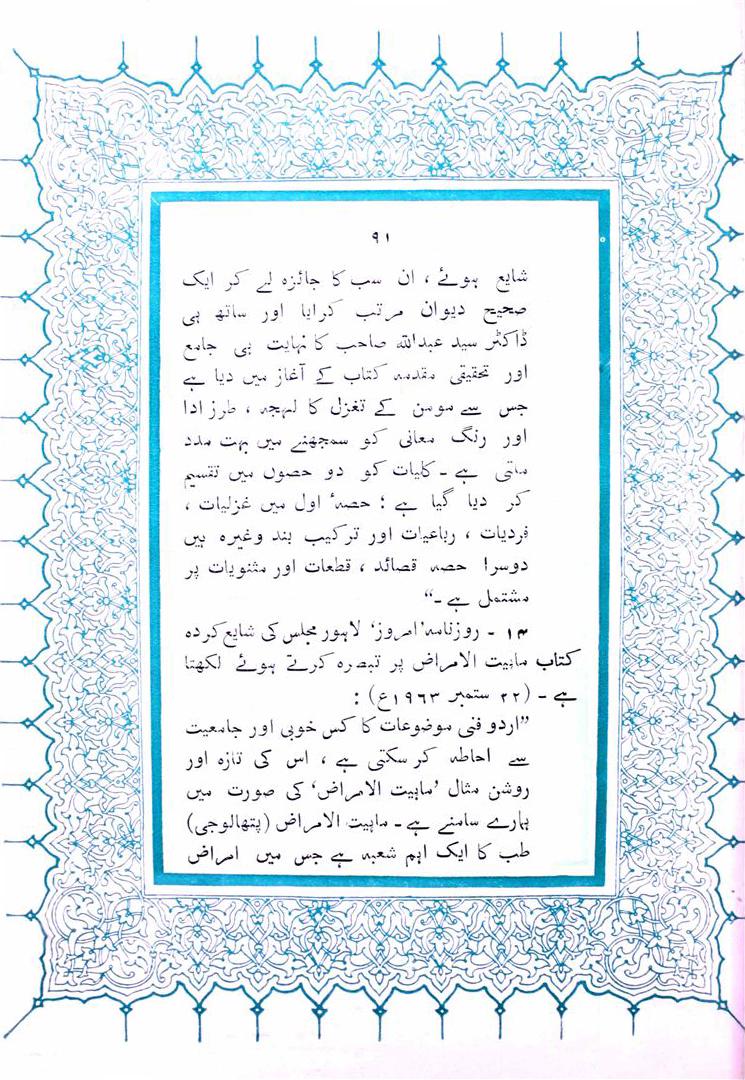 ۹۱
شایع ہوئے ، ان سب کا جائزہ لے کر ایک
صحیح دیوان مرتب کرایا اور ساتھ ہی
ڈاکٹر سید عبداللہ صاحب کا نہایت ہی جامع
اور تحقیقی مقدمہ کتاب کے آغاز میں دیا ہے
جس سے مومن کے تغزل کا لہجہ ، طرز ادا
اور رنگ معانی کو سمجھنے میں بہت مدد
ملتی ہے ۔ کلیات کو دو حصوں میں تقسیم
کر دیا گیا ہے ؛ حصہٴ اول میں غزلیات ،
فردیات ، رباعیات اور ترکیب بند وغیرہ ہیں
دوسرا حصہ قصائد ، قطعات اور مثنویات پر
مشتمل ہے ۔“
۱۳ ۔ روزنامہ ’امروز‘ لاہور مجلس کی شایع کردہ
کتاب ماہیت الامراض پر تبصرہ کرتے ہوئے لکھتا
ہے ۔ (۲۲ ستمبر ۱۹۶۳ع) :
”اردو فنی موضوعات کا کس خوبی اور جامعیت
سے احاطہ کر سکتی ہے ، اس کی تازہ اور
روشن مثال ’ماہیت الامراض‘ کی صورت میں
ہمارے سامنے ہے ۔ ماہیت الامراض (پتھالوجی)
طب کا ایک اہم شعبہ ہے جس میں امراض